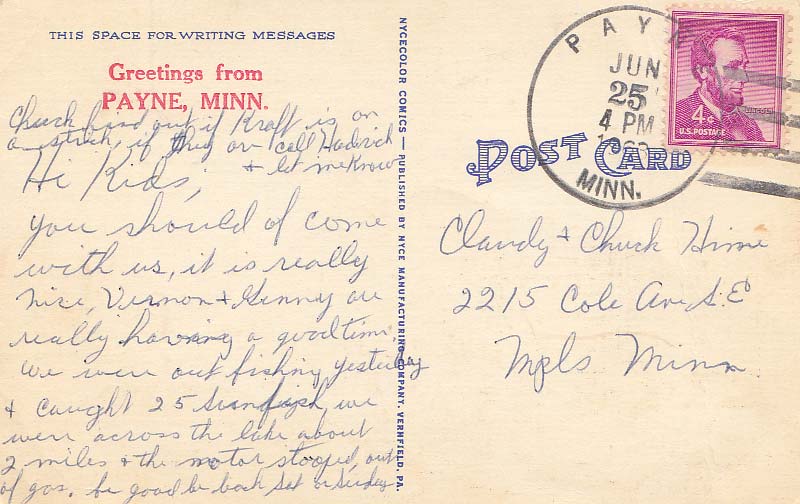 THIS SPACE FOR WRITING MESSAGES
Greetings from
PAYNE, MINN.
Chuck find out if Kraft is on
a strick, if they are call Hadrich
& let me know
Hi Kids,
you should of come
with us, it is really
nice, Vernon & Ginny are
really having a good time.
we were out fishing yesterday
& caught 25 sunfish, we
were across the lake about
2 miles & the motor stooped, out
of gas. be good be back Sat or Sunday
NYCECOLOR COMICS — PUBLISHED BY NYCE MANUFACTURING COMPANY, VERNFIELD, PA.
POST CARD
PAYN
JUN
25
4 PM
MINN.
LINCOLN
4¢
U.S. POSTAGE
Claudy & Chuck Hime
2215 Cole Ave S.E
Mpls Minn.